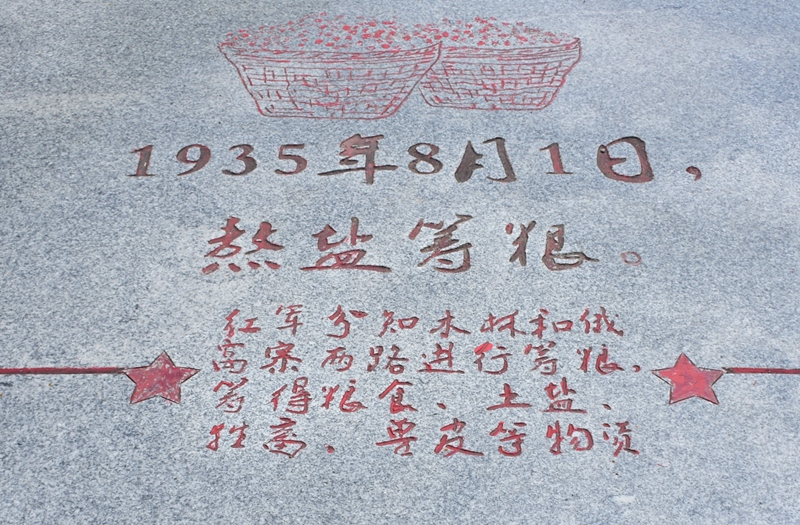 1935年8月1日，
熬盐筹粮。
红军分知木林和俄
高寨两路进行筹粮，
筹得粮食、土盐、
牲畜、兽皮等物资